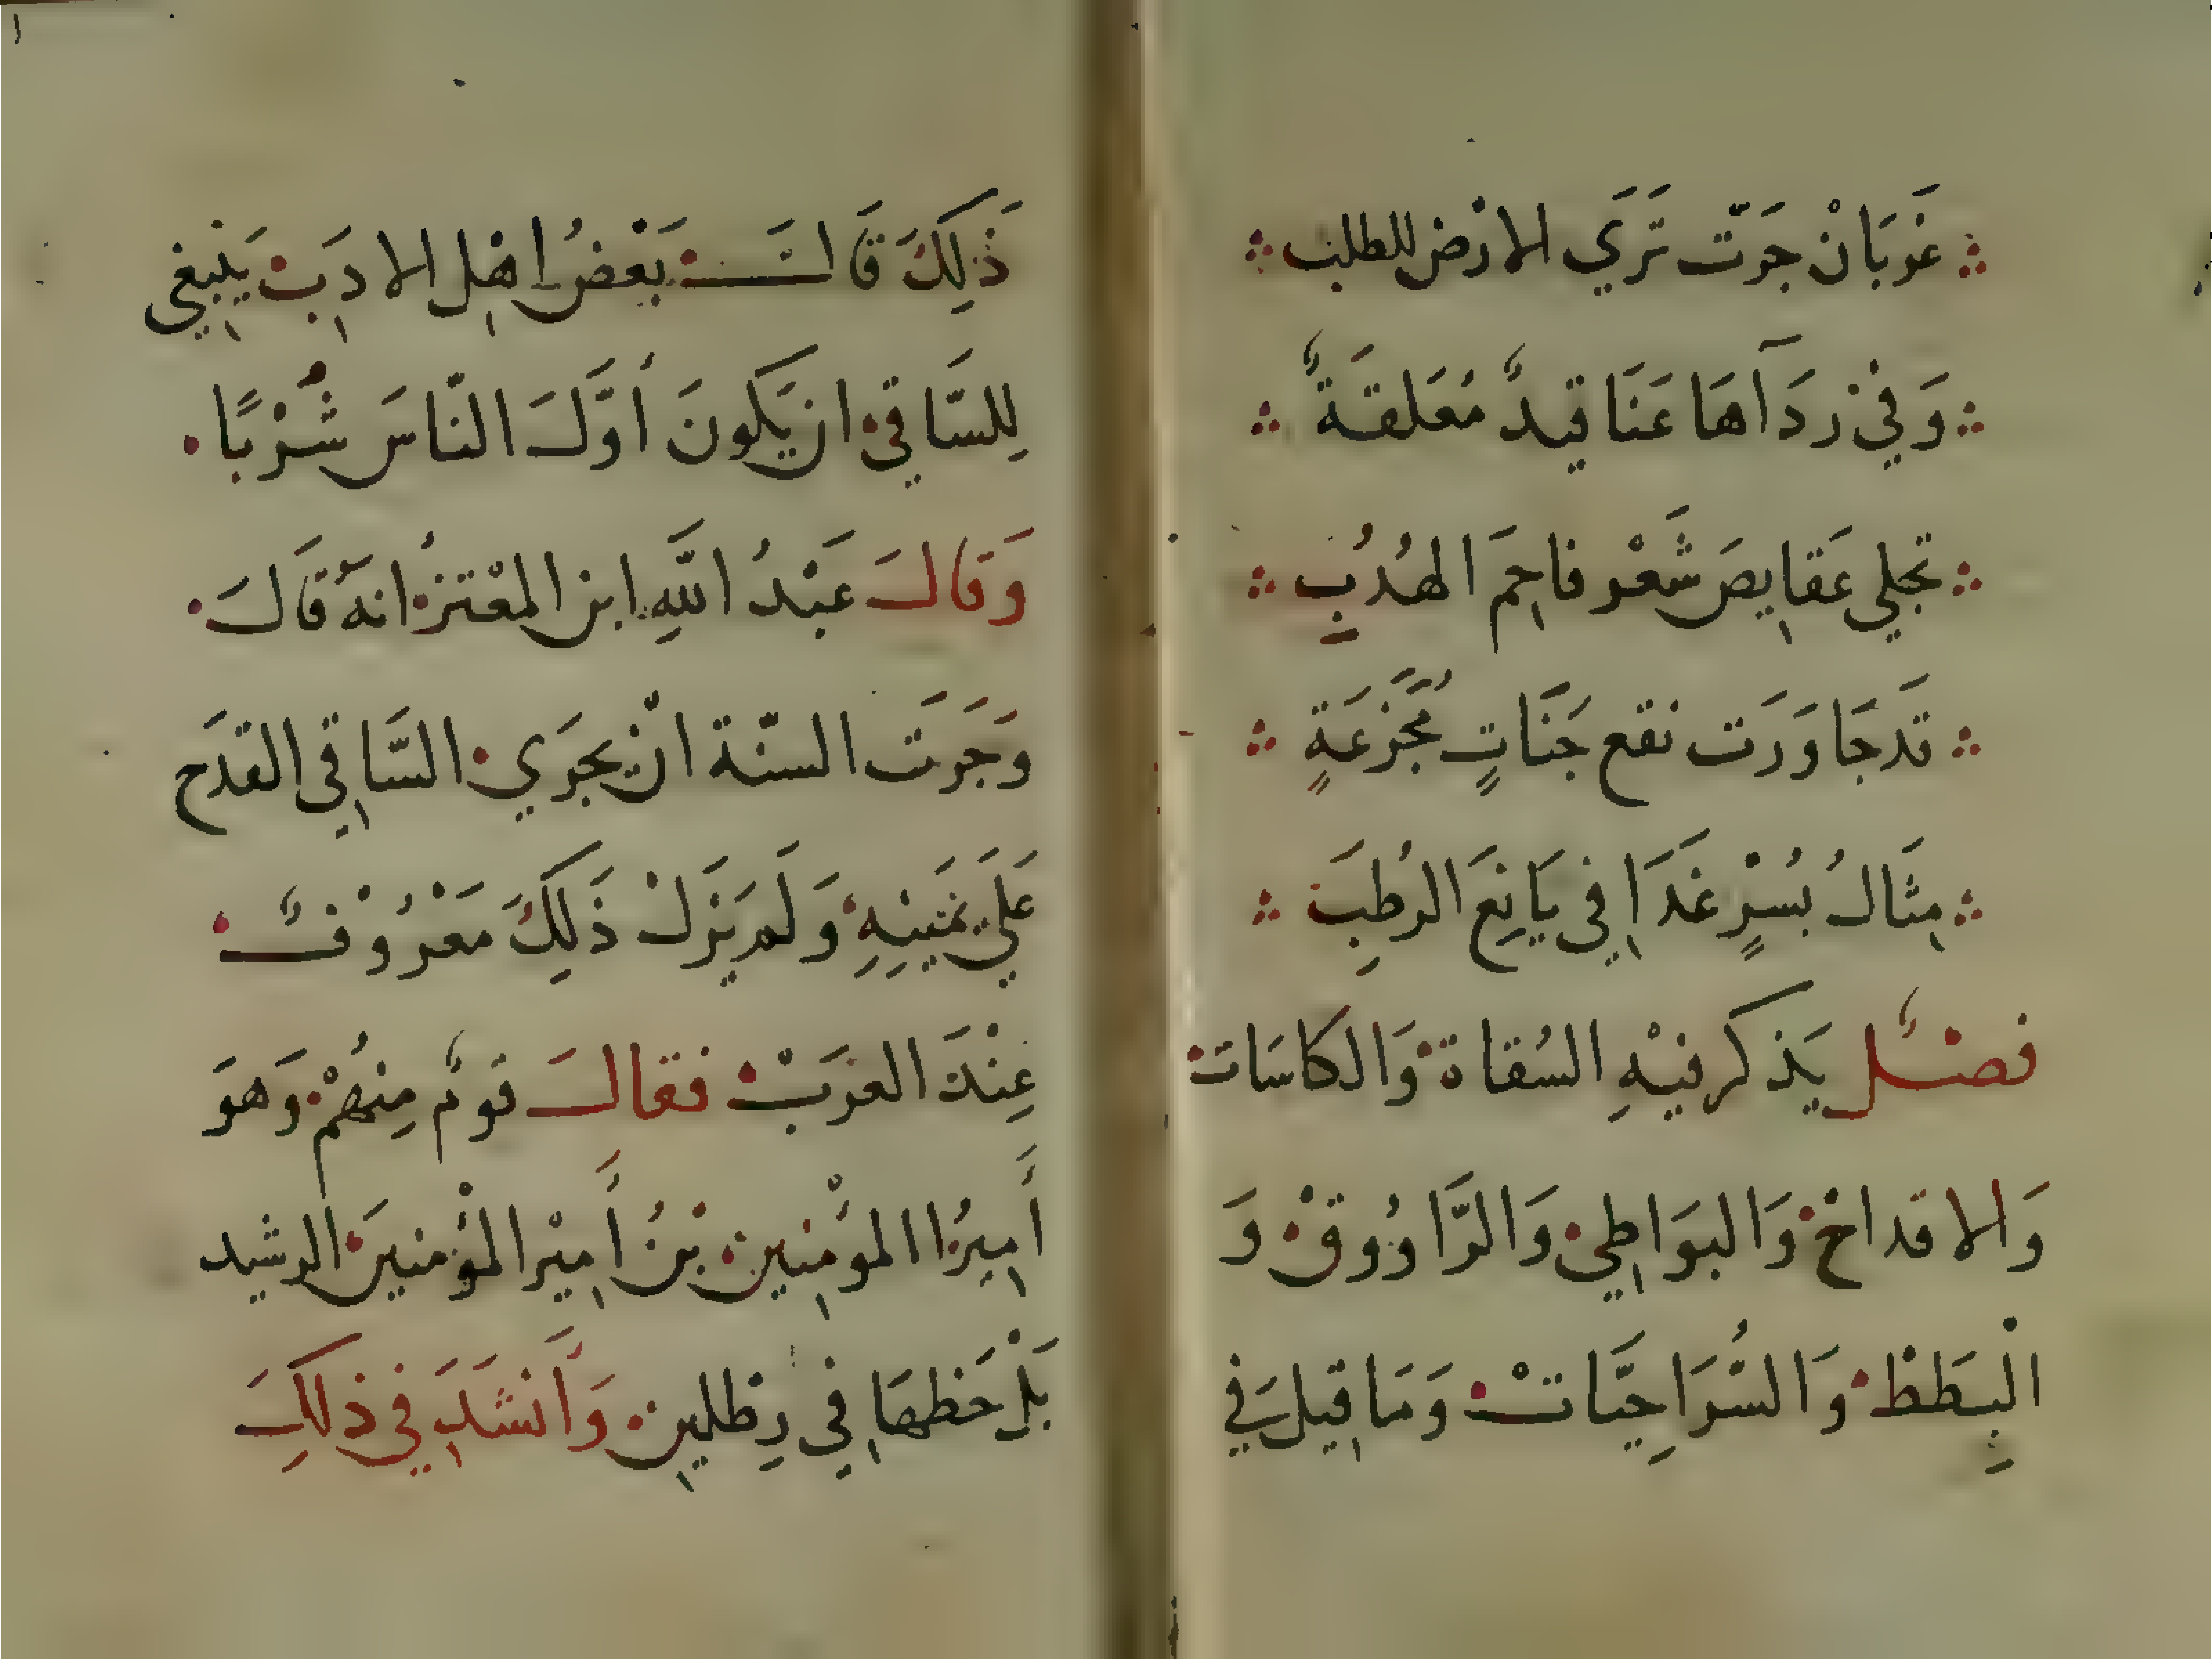 غَوبَانْ جَوَّت تَرَي الارْض للطلب
وَفيْ رِدَآهَا عَنَاقيدٌ مُعَلقَةٌ
تجلي عَقايِصَ شَعْر فاحِمَ الهُدُبِ
قَد جَاوَرَت نقع جَنَاتٍ مُجَزعَةٍ
مِثَالُ بُسْرٍ غَدَا فِي يَانِعَ الرُطِبَ
فصْلٌ يَذكر فيْهِ السُقاة وَالكاسَات
وَالاقداح وَالبوَاطِي وَالرَّاوُوقْ وَ
الْبِطَطْ وَالسُّرَاحِيَّاتْ وَمَا قِيلَ في
ذَلِكَ قَالَ بَعْضُ اهْلِ الادَبِ يَنبَغِي
لِلسَّاقي ان يَكونَ أوَّلَ النّاسَ شُرْبًا
وَقالَ عَبْدُ اللَّهِ ابن المعْتز انهُ قَالَ
وَجَرَت السنّة انْ يجرَي السَّاقِي القدَح
عَلَي يَمَينِهِ وَلَم يَزَلْ ذَلِكَ مَعْرُوْفٌ
عِنْدَ العرَبْ فقالَ قومٌ مِنهُمْ وَهوَ
أَمِيرُ المؤمِنِين بْنُ أَمِيْر المؤْمنينَ الرشيد
بَلْ حَظهَا فِي رِطلينِ وَأَنشَدَ فِي ذلِكَ